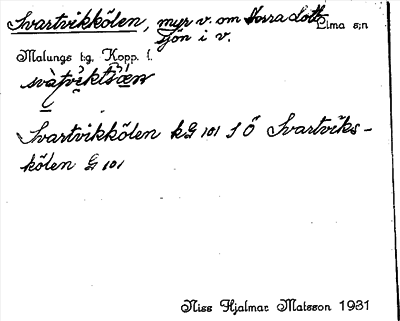 Svartvikkölen, myr v. om Norra Lott- Lima s:n
sjön i v.
Malungs tg. Kopp. l.
Svartvikkölen kG 101 S Ö Svartviks-
kölen G 101
Niss Hjalmar Matsson 1931